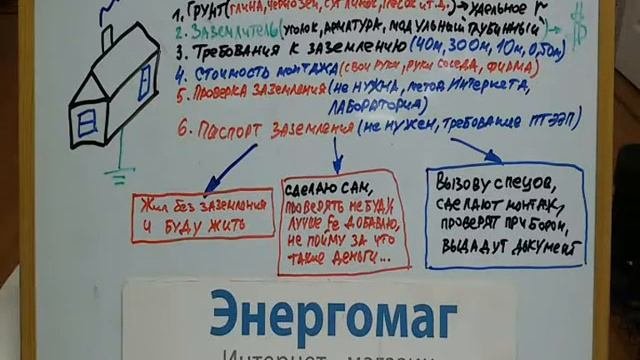 1. Грунт(глина, чернозем, суглинок, песок и т.д.)→удельное r
2. Заземлитель(уголок, арматура, модульный глубинный)→
3. Требования к заземлению(4ом, 30ом, 10м, 0,5ом)
4. Стоимость монтажа(свои руки, руки соседа, фирма)
5. Проверка заземления(не нужна, метод Интернета,
лаборатория)
6. Паспорт заземления(не нужен, требование ПТЭЭП)
Жил без заземления
и буду жить
сделаю сам,
проверять не буду,
лучше fe добавлю,
не пойму за что
такие деньги...
Вызову спецов,
сделают монтаж,
проверят прибором,
выдадут документ
Энергомаг
Интернет - магазин